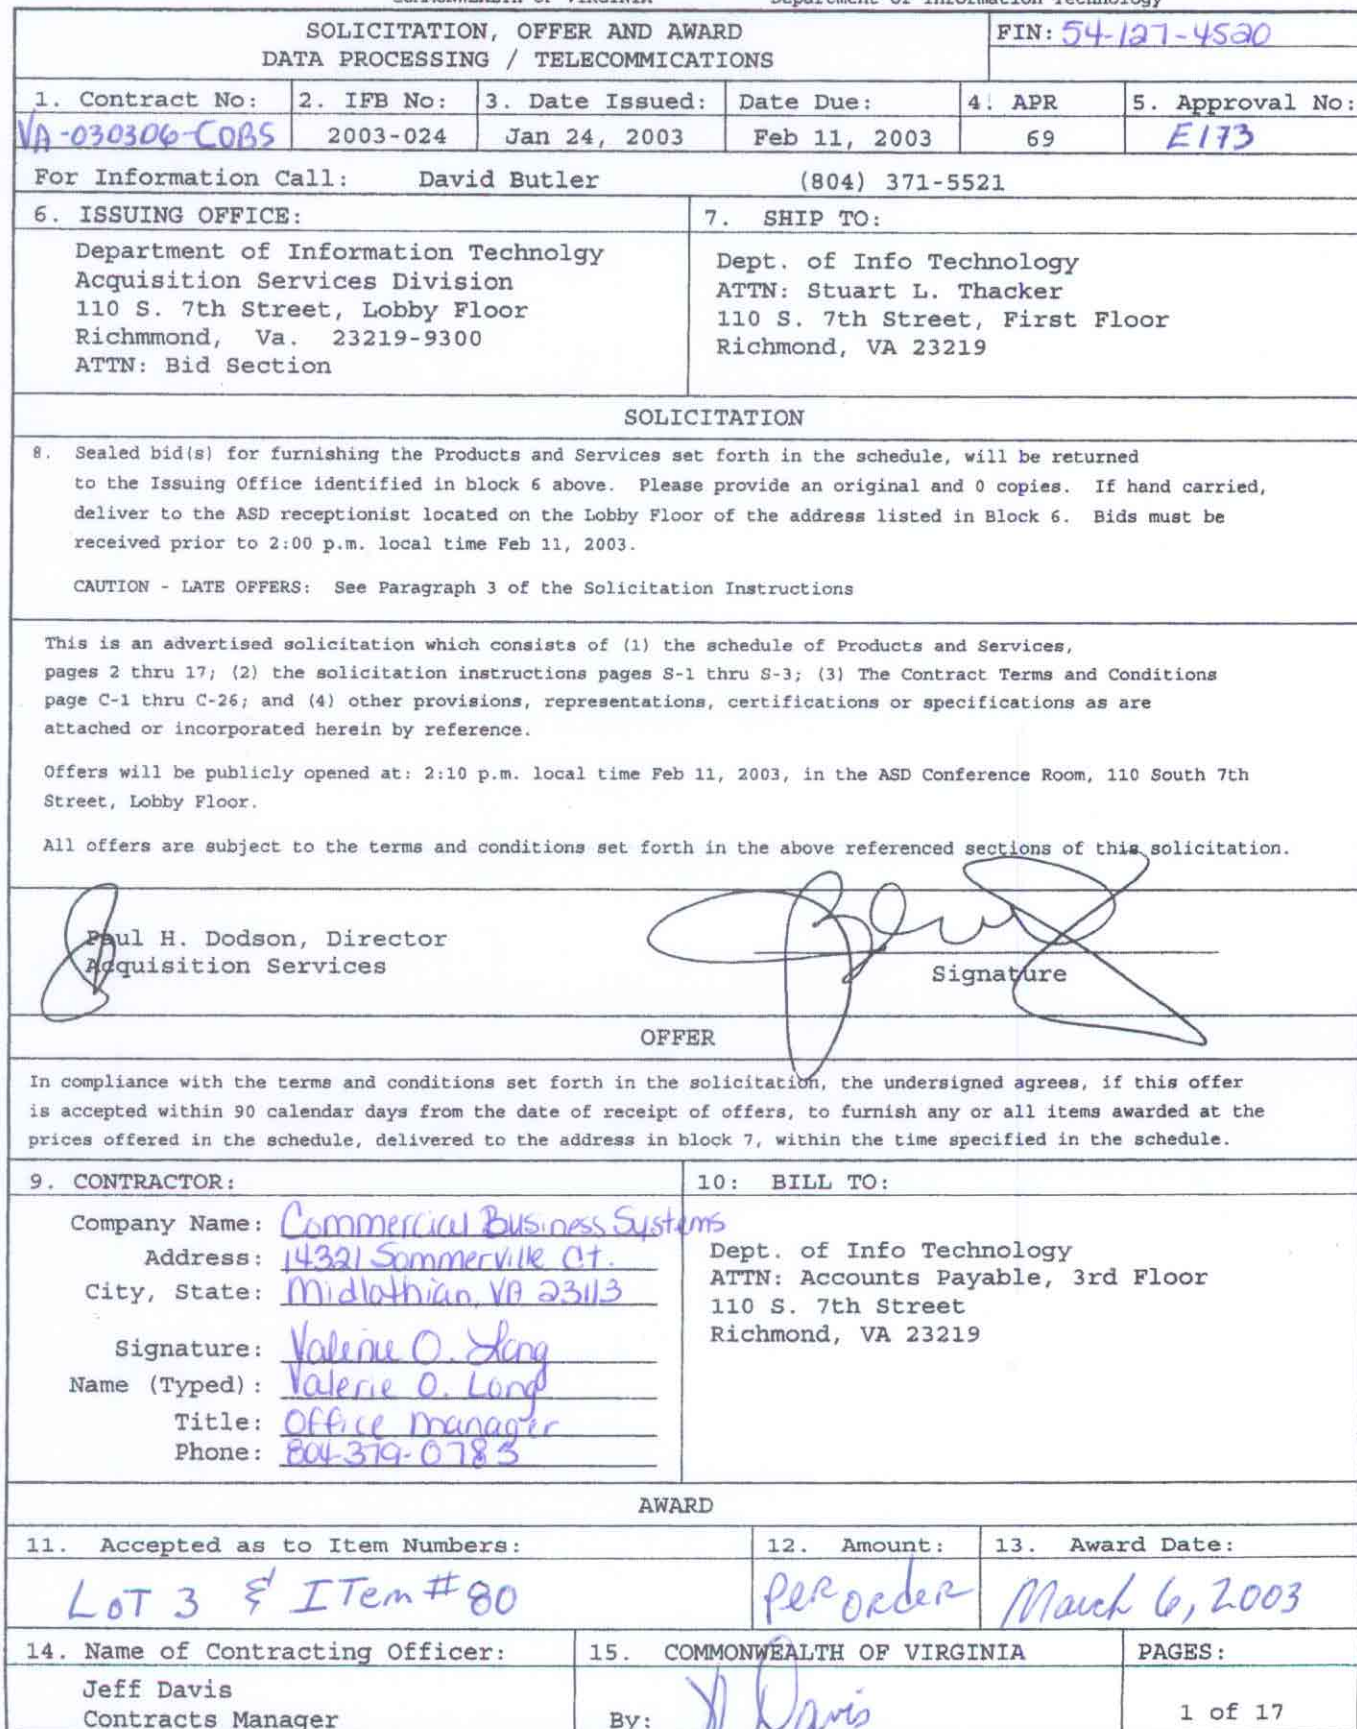 COMMONWEALTH OF VIRGINIA Department of Information Technology
SOLICITATION, OFFER AND AWARD
DATA PROCESSING / TELECOMMICATIONS
FIN: 54-127-4520
1. Contract No: 2. IFB No: 3. Date Issued: Date Due: 4. APR 5. Approval No:
VA-030306-COBS 2003-024 Jan 24, 2003 Feb 11, 2003 69 E173
For Information Call: David Butler (804) 371-5521
6. ISSUING OFFICE:
Department of Information Technolgy
Acquisition Services Division
110 S. 7th Street, Lobby Floor
Richmmond, Va. 23219-9300
ATTN: Bid Section
7. SHIP TO:
Dept. of Info Technology
ATTN: Stuart L. Thacker
110 S. 7th Street, First Floor
Richmond, VA 23219
SOLICITATION
8. Sealed bid(s) for furnishing the Products and Services set forth in the schedule, will be returned
to the Issuing Office identified in block 6 above. Please provide an original and 0 copies. If hand carried,
deliver to the ASD receptionist located on the Lobby Floor of the address listed in Block 6. Bids must be
received prior to 2:00 p.m. local time Feb 11, 2003.
CAUTION - LATE OFFERS: See Paragraph 3 of the Solicitation Instructions
This is an advertised solicitation which consists of (1) the schedule of Products and Services,
pages 2 thru 17; (2) the solicitation instructions pages S-1 thru S-3; (3) The Contract Terms and Conditions
page C-1 thru C-26; and (4) other provisions, representations, certifications or specifications as are
attached or incorporated herein by reference.
Offers will be publicly opened at: 2:10 p.m. local time Feb 11, 2003, in the ASD Conference Room, 110 South 7th
Street, Lobby Floor.
All offers are subject to the terms and conditions set forth in the above referenced sections of this solicitation.
Paul H. Dodson, Director
Acquisition Services
Signature
OFFER
In compliance with the terms and conditions set forth in the solicitation, the undersigned agrees, if this offer
is accepted within 90 calendar days from the date of receipt of offers, to furnish any or all items awarded at the
prices offered in the schedule, delivered to the address in block 7, within the time specified in the schedule.
9. CONTRACTOR:
Company Name: Commercial Business Systems
Address: 14321 Sommerville Ct.
City, State: Midlothian, VA 23113
Signature: Valerie O. Long
Name (Typed): Valerie O. Long
Title: Office manager
Phone: 804-379-0783
10: BILL TO:
Dept. of Info Technology
ATTN: Accounts Payable, 3rd Floor
110 S. 7th Street
Richmond, VA 23219
AWARD
11. Accepted as to Item Numbers: 12. Amount: 13. Award Date:
LOT 3 & ITem #80 PER ORDER March 6, 2003
14. Name of Contracting Officer:
Jeff Davis
Contracts Manager
15. COMMONWEALTH OF VIRGINIA
By: Davis
PAGES:
1 of 17